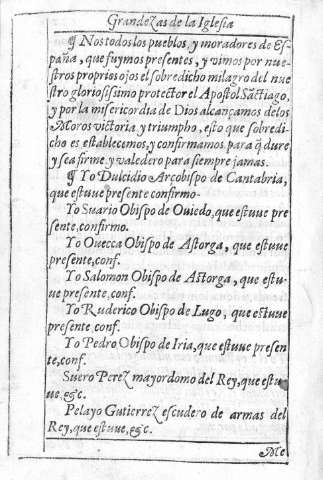 Grandezas de la Iglesia
¶ Nos todos los pueblos, y moradores de Es-
paña, que fuymos presentes, y vimos por nue-
stros proprios ojos el sobredicho milagro del nue
stro gloriosissimo protector el Apostol Sãctiago,
y por la misericordia de Dios alcançamos delos
Moros victoria y triumpho, esto que sobredi-
cho es establecemos, y confirmamos para q̃ dure
y sea firme, y valedero para siempre jamas.
¶ Yo Dulcidio Arçobispo de Cantabria,
que estuue presente confirmo.
Yo Suario Obispo de Ouiedo, que estuue pre
sente, confirmo.
Yo Ouecca Obispo de Astorga, que estuue
presente, conf.
Yo Salomon Obispo de Astorga, que estu-
ue presente, conf.
Yo Ruderico Obispo de Lugo, que estuue
presente conf.
Yo Pedro Obispo de Iria, que estuue presen
te, conf.
Suero Perez mayordomo del Rey, que estu
ue, &c.
Pelayo Gutierrez escudero de armas del
Rey, que estuue, &c.
Me